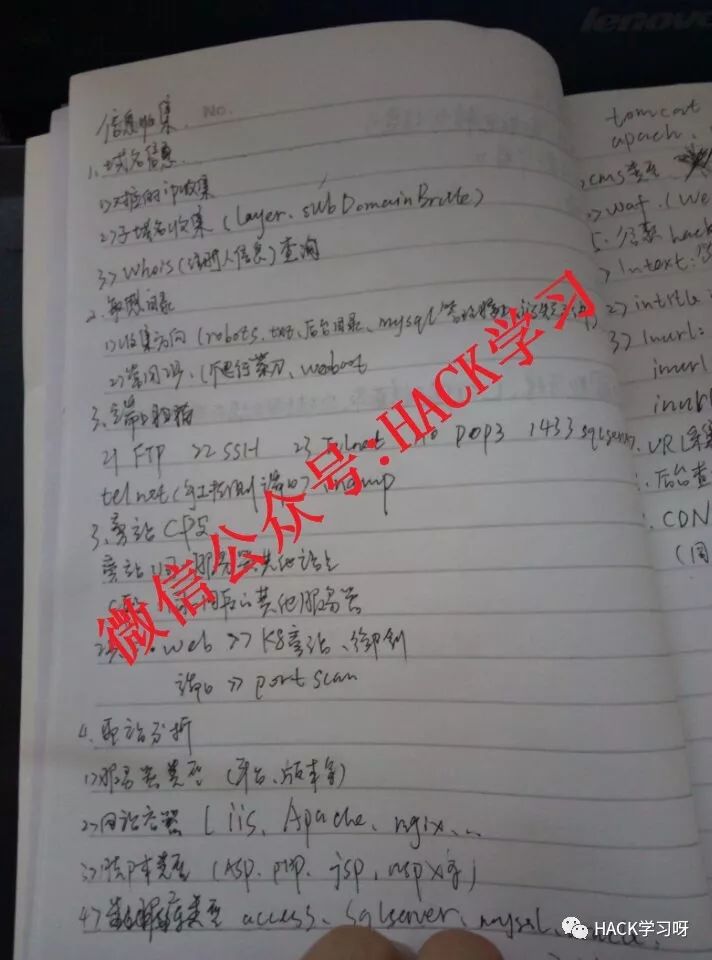 lenovo
信息收集. No.
1、域名信息.
1>对应的ip收集
2>子域名收集 (layer. subDomainBrute)
3> Whois(注册人信息)查询
2、敏感目录
1>收集方向 (robots. txt, 后台目录、mysql
2>常用
3、端口扫描
21 FTP 22 SSH 23 Telnet 110 pop3 1433 sqlserver
telnet( nmap
3、旁站C段
旁站 服务器其他站点
其他服务器
web >> K8旁站、御剑
端口 >> port scan
4、整站分析
1>服务器类型 (平台、版本等)
2>网站容器 ( iis、Apache、ngix...
3>脚本类型 (Asp. php. jsp, aspx等)
4>数据库类型 access、sqlserver、mysql、
tomcat
apach.
>cms类型
>waf. (We
5. hack
> Intext:
2> intitle
3> Inurl:
inurl
inurl
URL采集
后台查
CDN
微信公众号:HACK学习
HACK学习呀